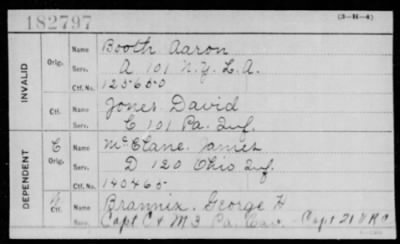 182797
(3-H-4)
INVALID
Orig.
Name Booth Aaron
Serv. A 101 N.Y. L.A.
Ctf. No. 125650
Ctf.
Name Jones David
Serv. C 101 Pa. Inf.
DEPENDENT
C
Orig.
Name McElane James
Serv. D 120 Ohio Inf.
Ctf. No. 140465
Ctf.
Name Brannix George H
Serv. Capt C & M 3 Pa. Cav. Capt 21 V R C